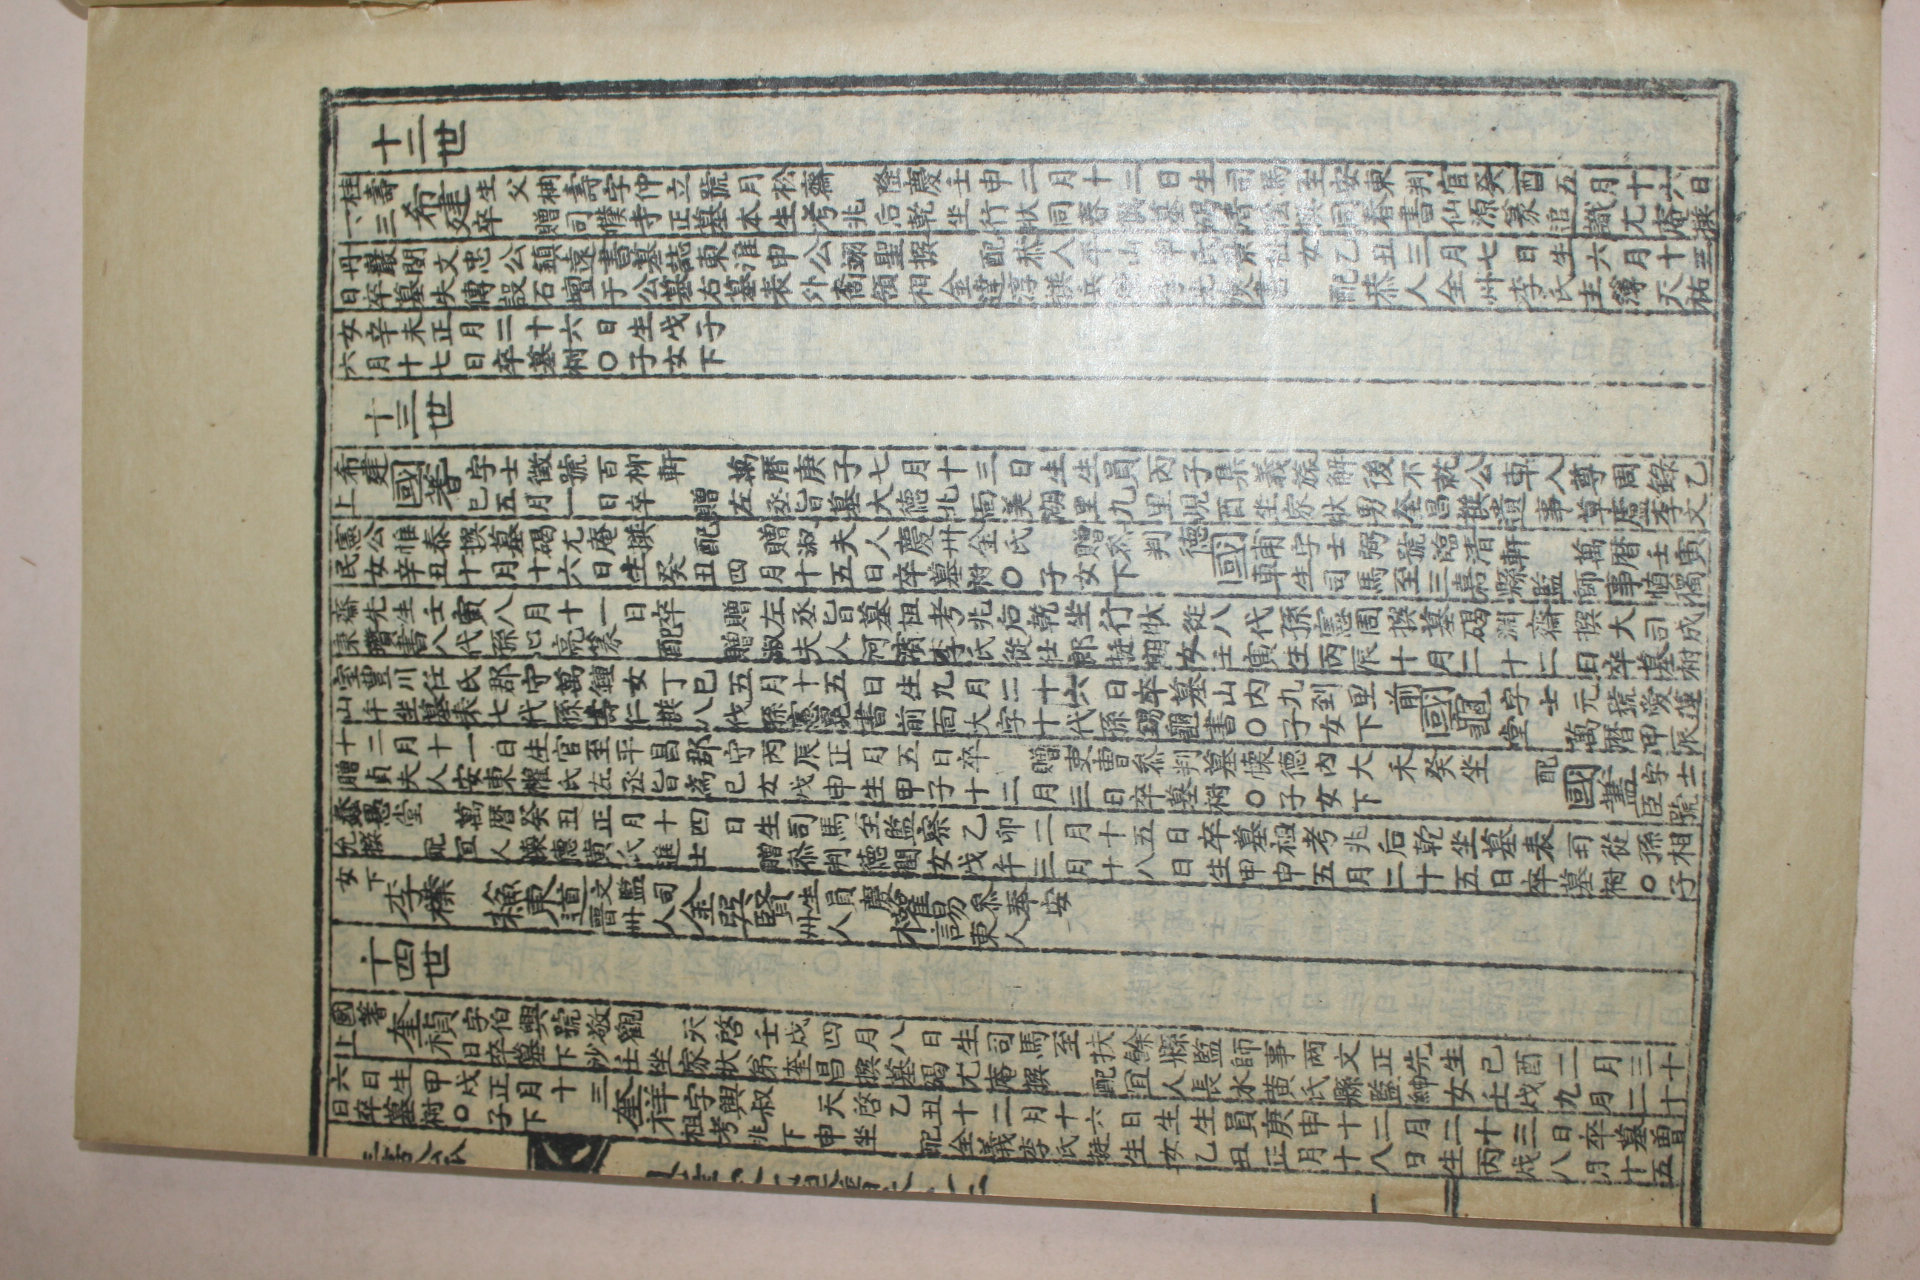 十二世
桂壽
一、三
希建
生父楠壽字仲立號月松齋 隆慶壬申二月十二日生司馬至安東判官癸酉五月十六日
卒 贈司僕寺正墓本生考兆后乾坐行狀同春撰墓碣清陰撰同春書仙源篆追識尤庵撰
丹巖閔文忠公鎮遠書墓誌東淮申公翊聖撰 配恭人平山申氏
女乙丑三月七日生六月十三
日卒墓失傳設石壇于公墓右墓表外裔領相金
撰
書 配恭人全州李氏主簿天祐
女辛未正月二十六日生戊子
六月十七日卒墓祔○子女下
十三世
希建
上
國蓍
字士徵號百柳軒 萬曆庚子七月十三日生生員丙子集義旅解後不就公車入尊周錄乙
巳五月一日卒 贈左丞旨墓大德北面美湖里九里峴酉坐家狀男奎昌撰遺事草廬李文
憲公惟泰撰墓碣尤庵撰 配 贈淑夫人慶州金氏 贈參判德
民女辛丑十月十六日生癸丑四月十五日卒墓祔○子女下
國
甫字士弼號臨清軒 萬曆壬寅
車生司馬至三嘉縣監師事慎獨
齋先生壬寅八月十一日卒 贈左丞旨墓祖考兆后乾坐行狀從八代孫憲周撰墓碣淵齋撰大司成
秉瓚書八代孫心亮篆 配 贈淑夫人河濱李氏從仕郎挺
女壬寅生丙辰十月二十二日卒墓祔
室豊川任氏郡守萬鍾女丁巳五月十五日生九月二十六日卒墓山內九到里前
山午坐墓表七代孫壽仁撰八代孫憲冕書前面大字十代孫錫龜書○子女下
國龜
字士元號愛蓮
堂 萬曆甲辰
十二月十一日生官至平昌郡守丙辰正月五日卒 贈吏曹參判墓懷德內大禾癸坐 配
贈貞夫人安東權氏左丞旨爲己女戊申生甲子十二月三日卒墓祔○子女下
國蓋
字士
臣號
蠢愚堂 萬曆癸丑正月十四日生司馬至監察乙卯二月十五日卒墓祖考兆后乾坐墓表再從孫相
允撰 配宜人懷德黃氏進士 贈參判德潤女戊午三月十八日生甲申五月二十五日卒墓祔○子
女下
李榛
文監司
晋州人
金㒜賢
生員慶
州人
權諹
參奉安
東人
十四世
國蓍
上
奎禎
字伯興號敬觀 天啓壬戌四月八日生司馬至扶餘縣監師事兩文正先生己酉二月三十
日卒墓下沙壬坐家狀弟奎昌撰墓碣尤庵撰 配宜人長水黃氏縣監紳女壬戌九月二十
六日生甲戌正月十三
日卒墓祔○子下
奎祥
字興叔 天啓乙丑十二月十六日生生員庚申十二月二十三日卒墓曾
祖考兆下申坐 配全義李氏挺生女乙丑正月十八日生丙戌八月十五